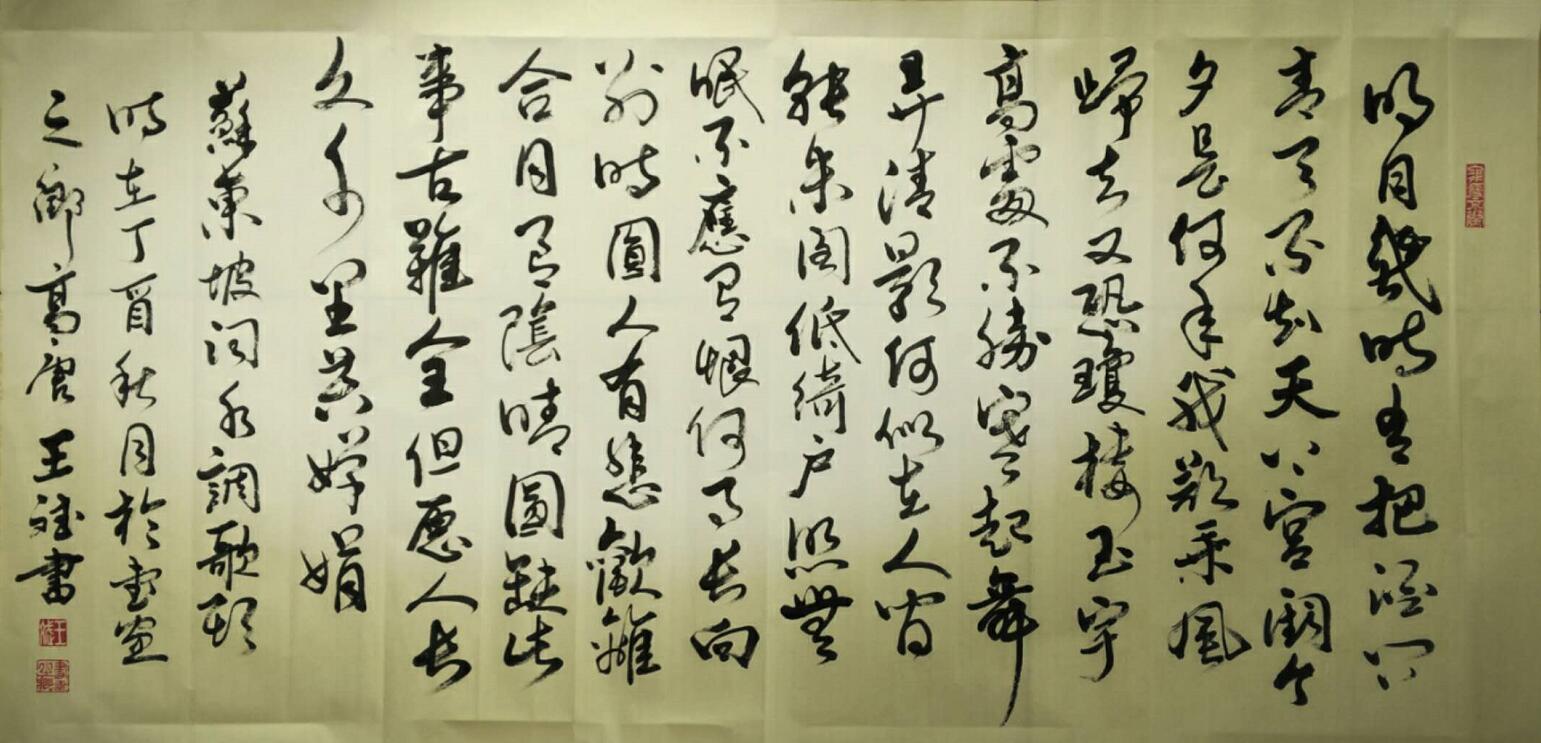 明月幾時有把酒問
青天不知天上宮闕今
夕是何年我欲乘風
歸去又恐瓊樓玉宇
高處不勝寒起舞
弄清影何似在人間
轉朱阁低綺户照無
眠不應有恨何事長向
別時圓人有悲歡離
合月有陰晴圓缺此
事古難全但愿人長
久千里共嬋娟
蘇東坡詞水調歌頭
時在丁酉秋月於書画
之鄉高唐王書